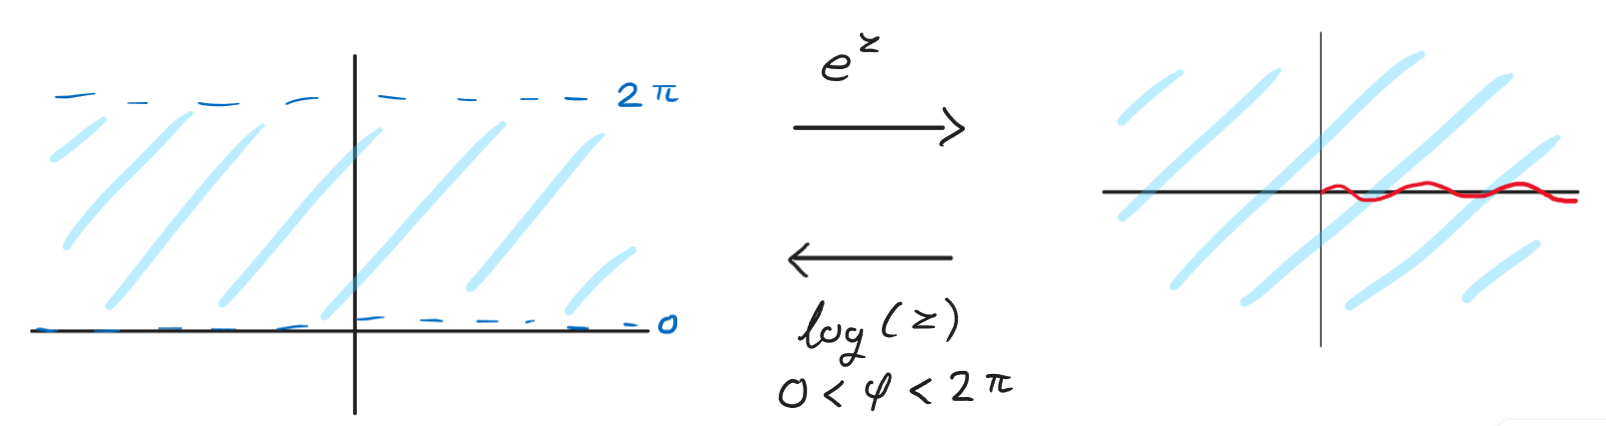 2π
0
e^z
log(z)
0 < φ < 2π